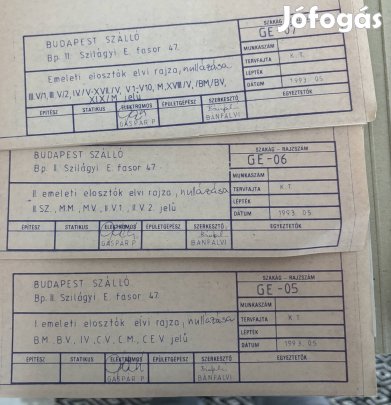 Jófogás
BUDAPEST SZÁLLÓ
Bp. II. Szilágyi E. fasor 47.
SZAKÁG - RAJZSZÁM
GE-07
MUNKASZÁM
Emeleti elosztók elvi rajza, nullázása
III.V/1, III.V/2, IV/V-XVII/V, V1-V10, M,XVIII/V, /BM/BV,
XIX/M jelű
TERVFAJTA K.T.
LÉPTÉK
DÁTUM 1993. 05
ÉPÍTÉSZ STATIKUS ELEKTROMOS ÉPÜLETGÉPÉSZ SZERKESZTŐ EGYEZTETŐK
GÁSPÁR P. BÁNFALVI
BUDAPEST SZÁLLÓ
Bp. II. Szilágyi E. fasor 47.
SZAKÁG - RAJZSZÁM
GE-06
MUNKASZÁM
II. emeleti elosztók elvi rajza, nullázása
II.SZ., M.M., M.V., II.V.1., II.V.2. jelű
TERVFAJTA K.T.
LÉPTÉK
DÁTUM 1993. 05
ÉPÍTÉSZ STATIKUS ELEKTROMOS ÉPÜLETGÉPÉSZ SZERKESZTŐ EGYEZTETŐK
GÁSPÁR P. BÁNFALVI
BUDAPEST SZÁLLÓ
Bp. II. Szilágyi E. fasor 47.
SZAKÁG - RAJZSZÁM
GE-05
MUNKASZÁM
I. emeleti elosztók elvi rajza, nullázása
B.M., B.V., I.V., C.V., C.M., C.E.V. jelű
TERVFAJTA K.T.
LÉPTÉK
DÁTUM 1993. 05
ÉPÍTÉSZ STATIKUS ELEKTROMOS ÉPÜLETGÉPÉSZ SZERKESZTŐ EGYEZTETŐK
GÁSPÁR P. BÁNFALVI